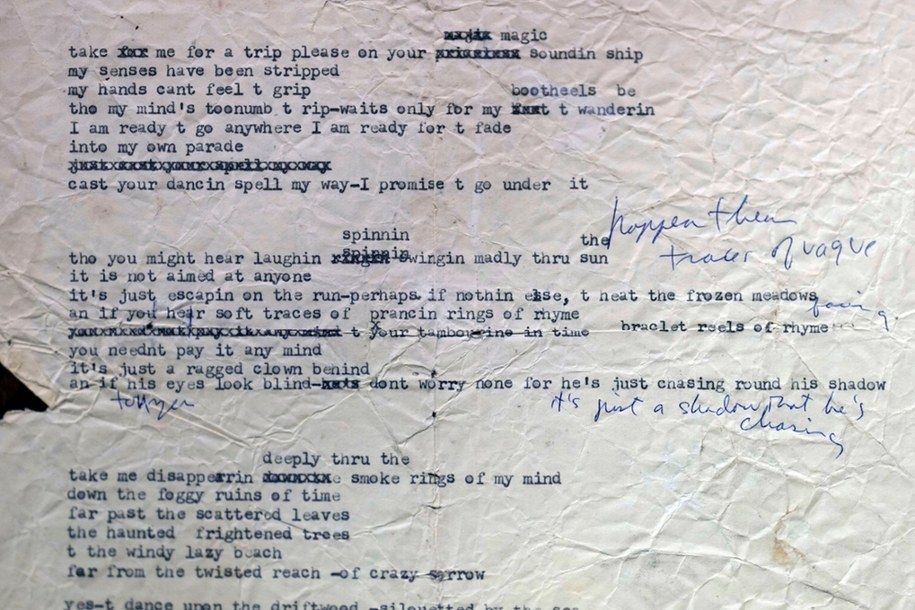 magic
take me for a trip please on your soundin ship
my senses have been stripped
my hands cant feel t grip
bootheels be
tho my mind's toonumb t rip-waits only for my t wanderin
I am ready t go anywhere I am ready for t fade
into my own parade
cast your dancin spell my way-I promise t go under it
happen then
spinnin
the
traces of vague
spinnin
tho you might hear laughin swingin madly thru sun
it is not aimed at anyone
it's just escapin on the run-perhaps if nothin else, t heat the frozen meadows
an if you hear soft traces of prancin rings of rhyme
t your tambourine in time braclet reels of rhyme
you neednt pay it any mind
it's just a ragged clown behind
an if his eyes look blind- dont worry none for he's just chasing round his shadow
it's just a shadow that he's
chasing
deeply thru the
take me disapperrin smoke rings of my mind
down the foggy ruins of time
far past the scattered leaves
the haunted frightened trees
t the windy lazy beach
far from the twisted reach -of crazy sorrow
yes-t dance upon the driftwood -silouetted by the sea